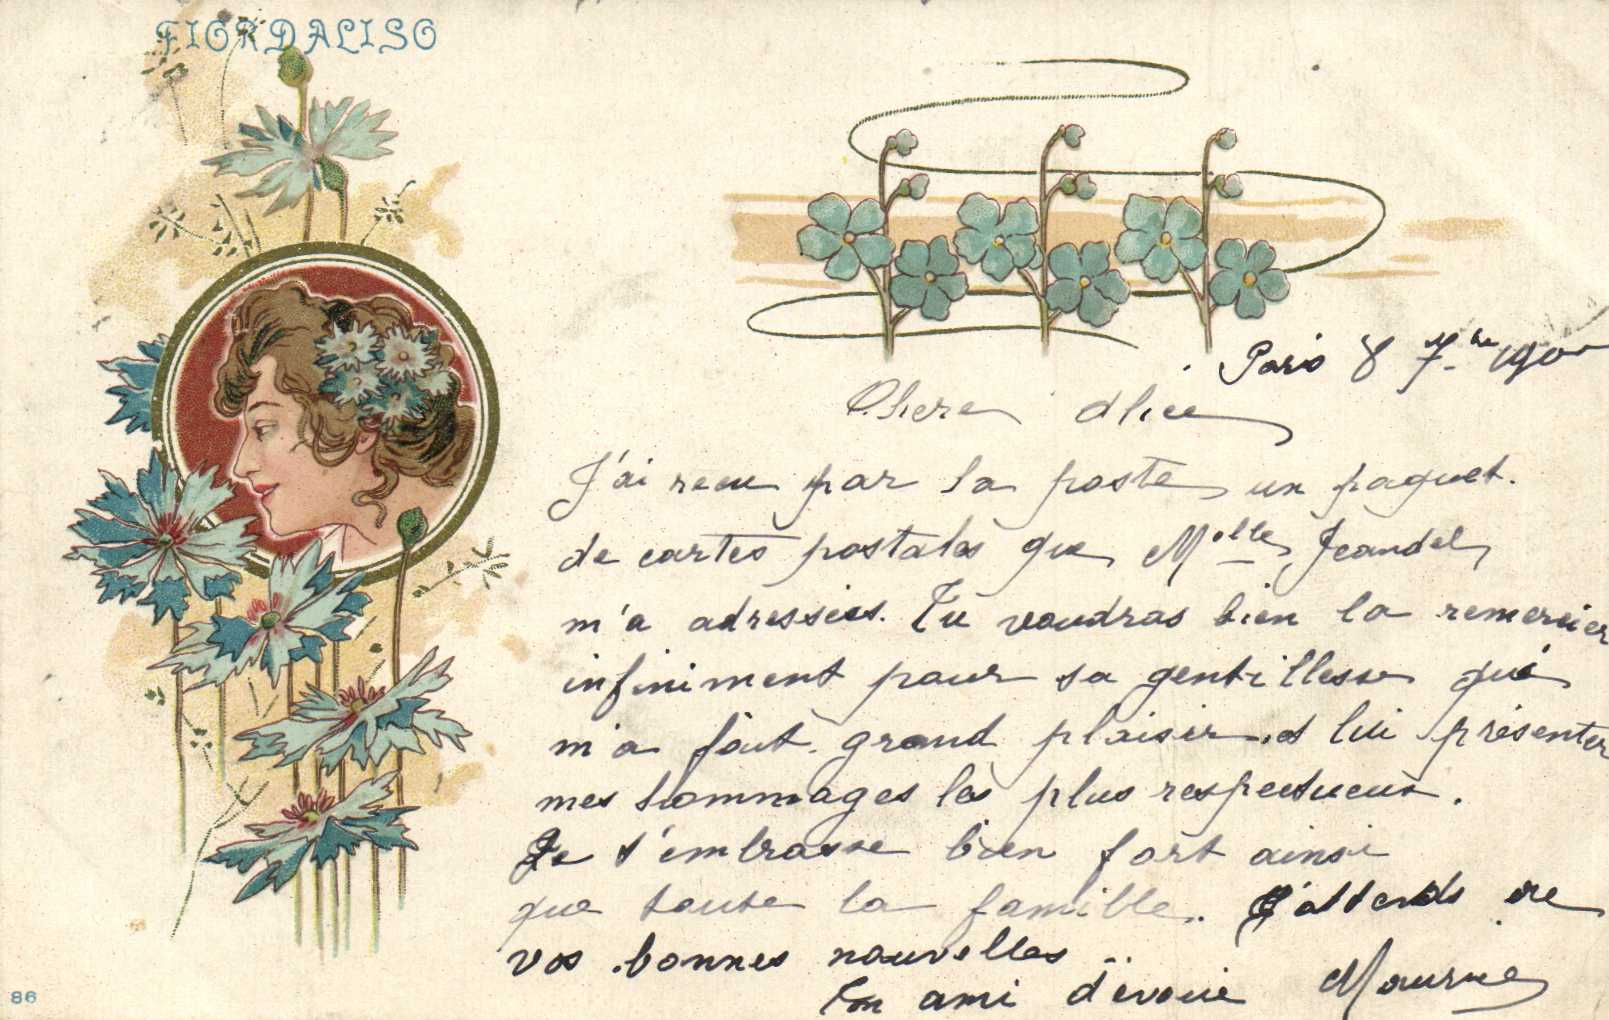 FIORDALISO
Paris 8 7bre 190
Chere Alice
J'ai recu par la poste un paquet.
de cartes postales que Melle Jeandel
m'a adressées. Tu voudras bien la remercier
infiniment pour sa gentillesse qui
m'a fait grand plaisir et lui présenter
mes hommages les plus respectueux.
Je t'embrasse bien fort ainsi
que toute la famille. J'attends de
vos bonnes nouvelles ..
Ton ami dévoué
86